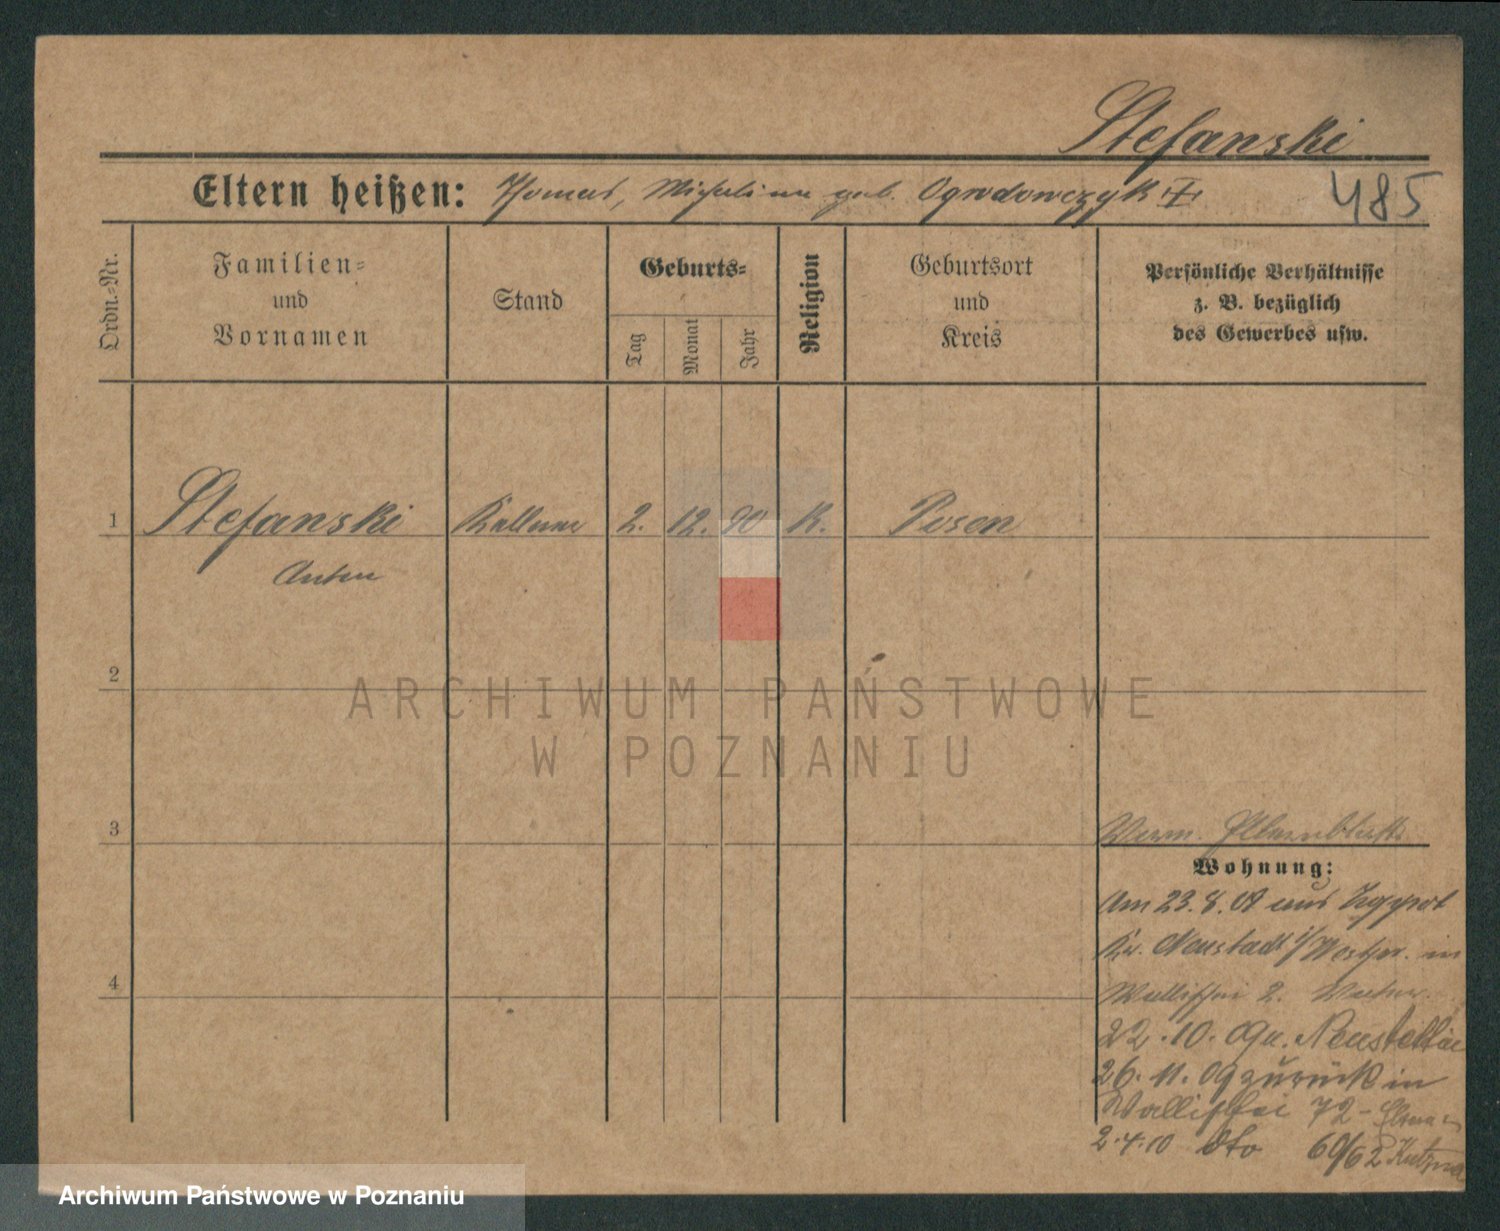 Stefanski
Eltern heißen: Thomas, Michalina geb. Ogrodowczyk
485
Ordn.-Nr.
Familien-
und
Vornamen
Stand
Geburts-
Tag
Monat
Jahr
Religion
Geburtsort
und
Kreis
Persönliche Verhältnisse
z. B. bezüglich
des Gewerbes usw.
1 Stefanski Kellner 2. 12. 90 K. Posen
Anton
2
ARCHIWUM PAŃSTWOWE
W POZNANIU
3
Wohnung:
Am 23.8.09 aus Zoppot
Kr. Neustadt i/Westpr. in
4
Wallischei 2.
22.10.09 n. Neustettin
26.11.09 zurück in
Wallischei 72
2.4.10 dto 60/62
Archiwum Państwowe w Poznaniu